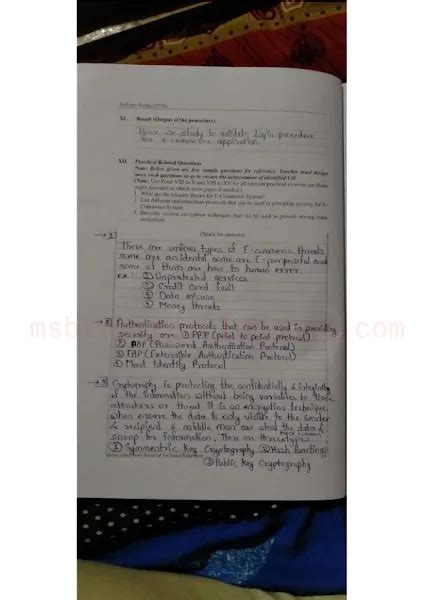 Software Testing (22518)
XI. Result (Output of the procedure)
Hence we study to validate login procedure
for e-commerce application.
XII. Practical Related Questions
Note: Below given are few sample questions for reference. Teacher must design
more such questions so as to ensure the achievement of identified CO.
(Note: Use Point VIII to X and XIII to XV for all relevant practical exercise use blank
pages provided or attach more pages if needed.)
1. What are the security threats for E-Commerce System?
2. List different authentication protocols that can be used in providing security for E-
Commerce System
3. Describe various encryption techniques that can be used to provide strong login
credentials.
(Space for answers)
→ 1
There are various types of E-commerce threats
some are accidental some are E-purposeful and
some of them are have to human error.
ex: ① Unprotected services
② Credit card fault
③ Data misuse
④ Money threads
→ 2 Authentication protocols that can be used in providing
security are ① P.P.P (point to point protocol)
② PAP (Password Authentication Protocol)
③ EAP (Extensible Authentication Protocol)
④ Most Identity Protocol
→ 3 Cryptography is protecting the confidentiality & integrity
of the information without being variables to those
attackers or threat it is an encryption technique
when ensure the data is only visible to the sender
& recipient & middle man can steal the data &
snoop for information. There are three types
most common
① Symmetric Key Cryptography ② Hash functions
③ Public Key Cryptography